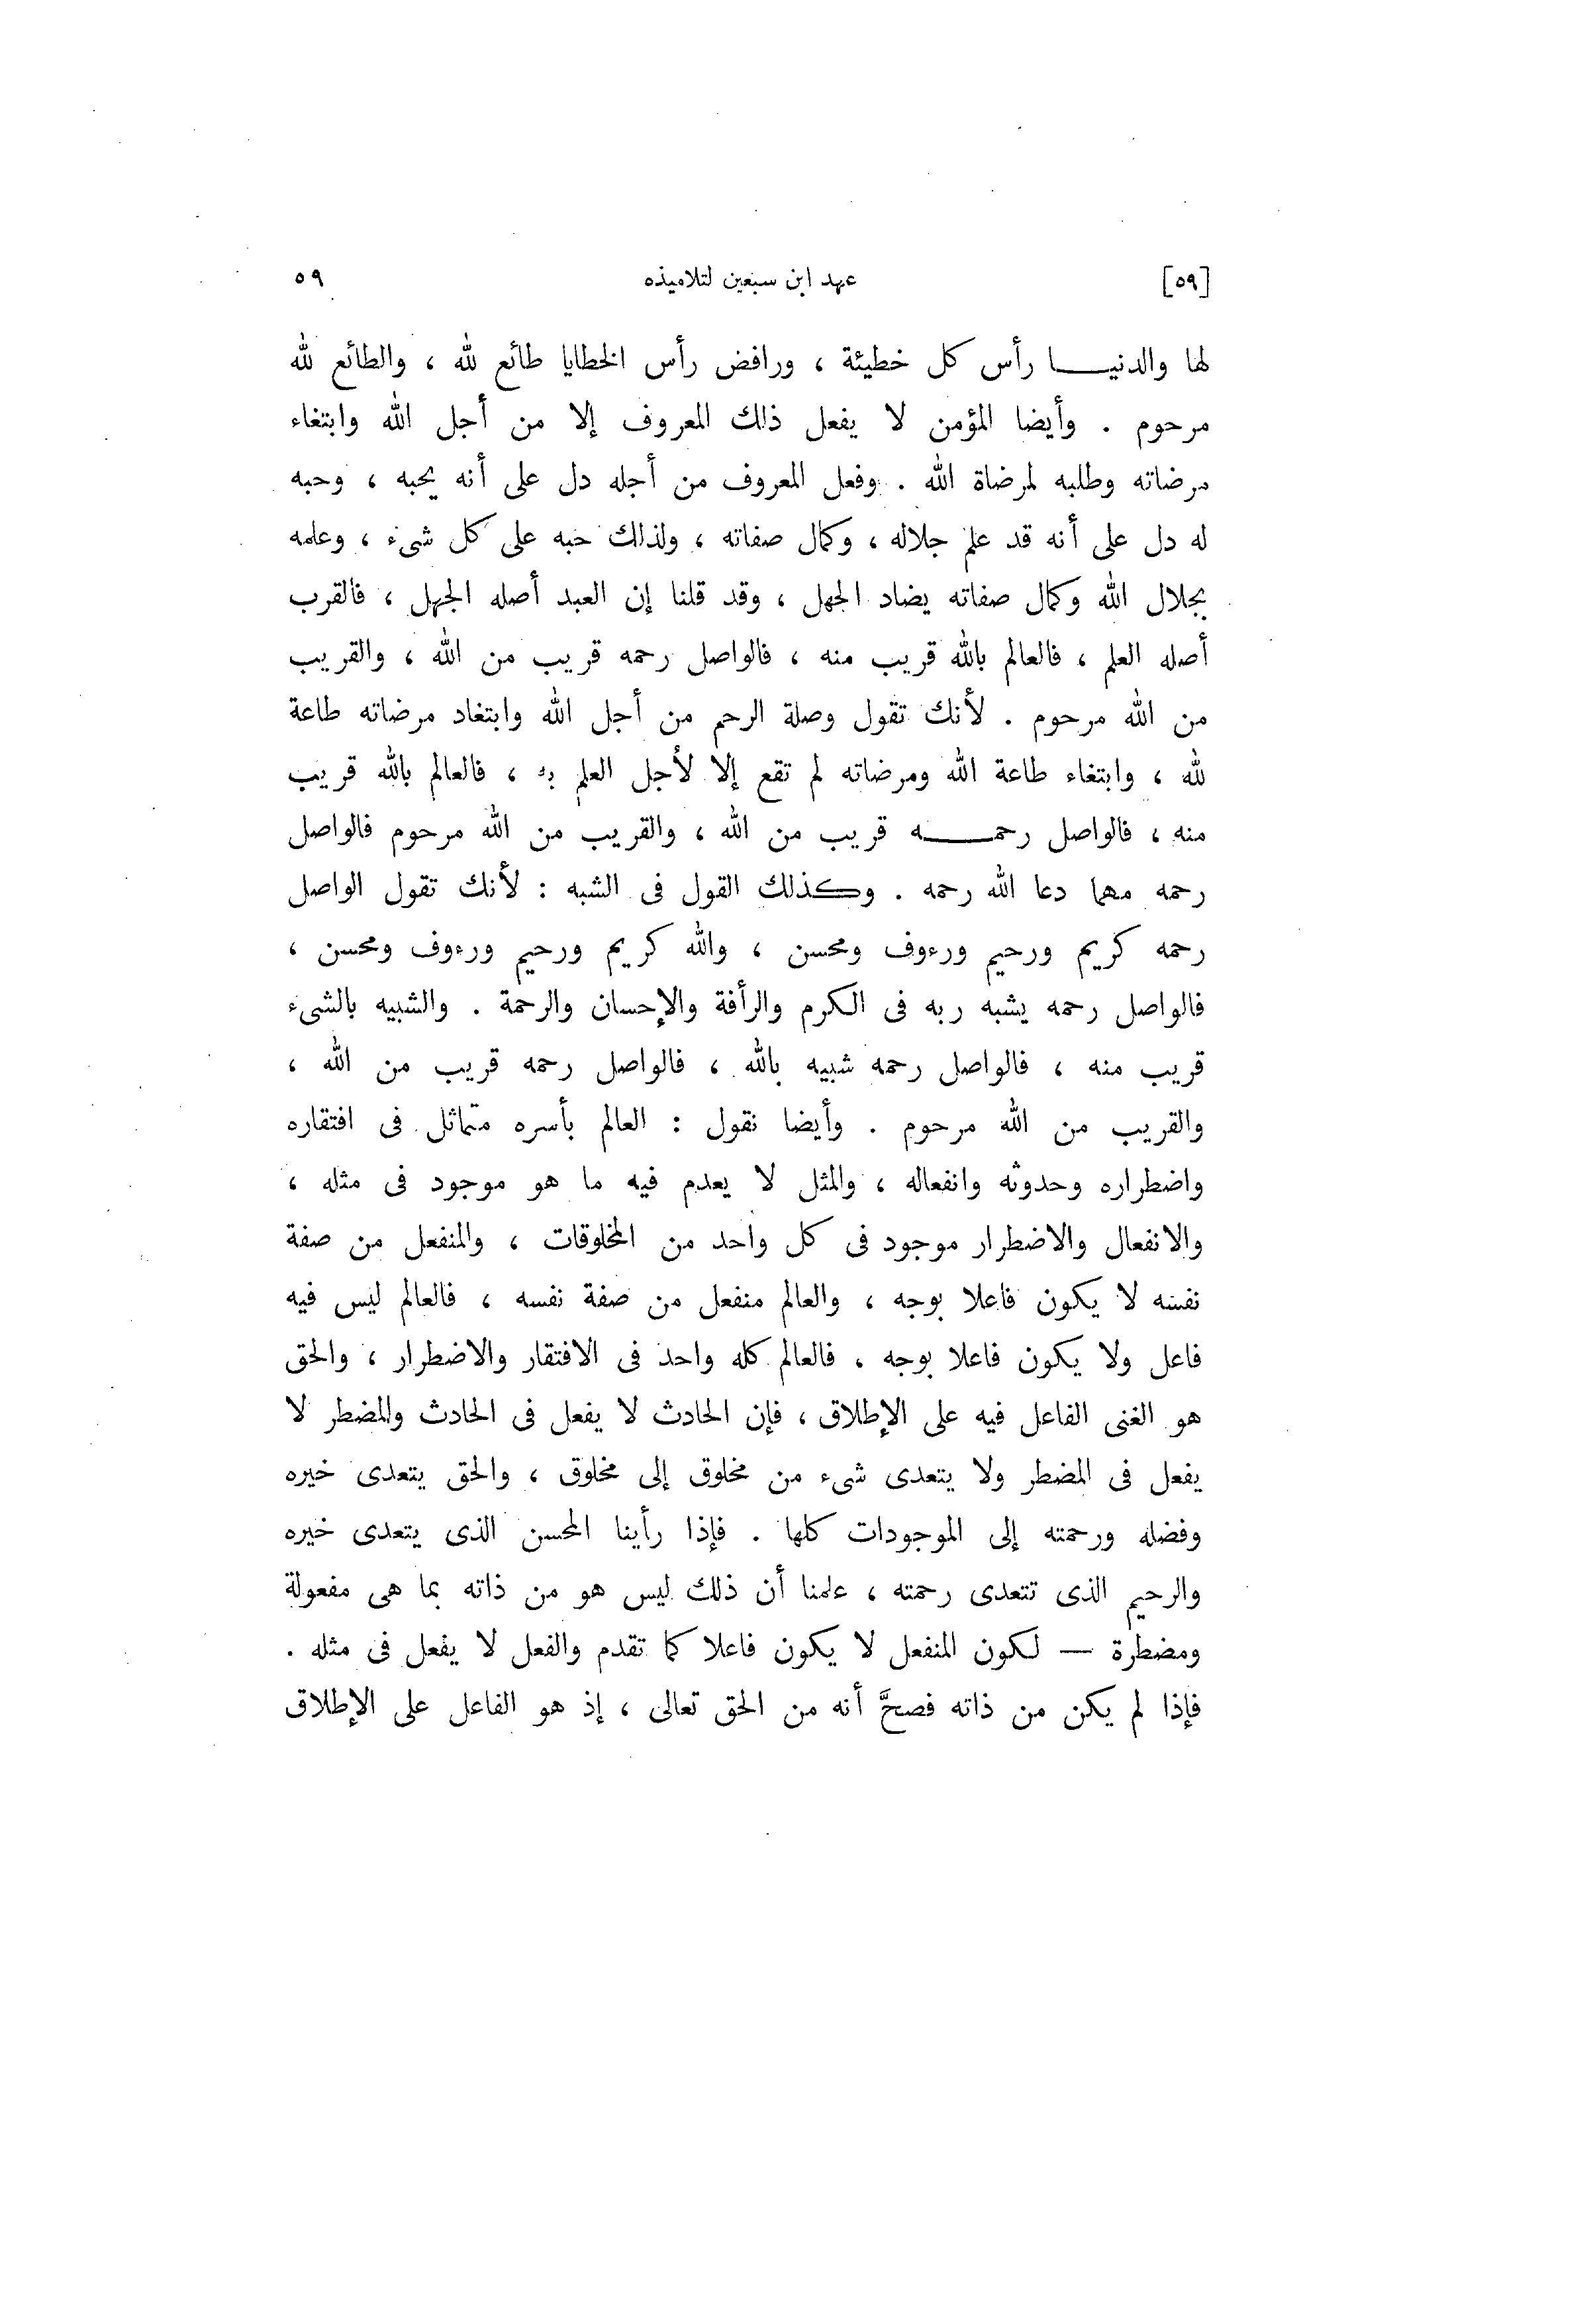 [٥٩] عهد ابن سبعين لتلاميذه ٥٩
لها والدنيا رأس كل خطيئة ، ورافض رأس الخطايا طائع لله ، والطائع لله
مرحوم . وأيضا المؤمن لا يفعل ذلك المعروف إلا من أجل الله وابتغاء
مرضاته وطلبه لمرضاة الله . وفعل المعروف من أجله دل على أنه يحبه ، وحبه
له دل على أنه قد علم جلاله ، وكمال صفاته ، ولذلك حبه على كل شىء ، وعلمه
بجلال الله وكمال صفاته يضاد الجهل ، وقد قلنا إن العبد أصله الجهل ، فالقرب
أصله العلم ، فالعالم بالله قريب منه ، فالواصل رحمه قريب من الله ، والقريب
من الله مرحوم . لأنك تقول وصلة الرحم من أجل الله وابتغاد مرضاته طاعة
لله ، وابتغاء طاعة الله ومرضاته لم تقع إلا لأجل العلم به ، فالعالم بالله قريب
منه ، فالواصل رحمه قريب من الله ، والقريب من الله مرحوم فالواصل
رحمه مهما دعا الله رحمه . وكذلك القول فى الشبه : لأنك تقول الواصل
رحمه كريم ورحيم ورءوف ومحسن ، والله كريم ورحيم ورءوف ومحسن ،
فالواصل رحمه يشبه ربه فى الكرم والرأفة والإحسان والرحمة . والشبيه بالشىء
قريب منه ، فالواصل رحمه شبيه بالله ، فالواصل رحمه قريب من الله ،
والقريب من الله مرحوم . وأيضا نقول : العالم بأسره متماثل فى افتقاره
واضطراره وحدوثه وانفعاله ، والمثل لا يعدم فيه ما هو موجود فى مثله ،
والانفعال والاضطرار موجود فى كل واحد من المخلوقات ، والمنفعل من صفة
نفسه لا يكون فاعلا بوجه ، والعالم منفعل من صفة نفسه ، فالعالم ليس فيه
فاعل ولا يكون فاعلا بوجه ، فالعالم كله واحد فى الافتقار والاضطرار ، والحق
هو الغنى الفاعل فيه على الإطلاق ، فإن الحادث لا يفعل فى الحادث والمضطر لا
يفعل فى المضطر ولا يتعدى شىء من مخلوق إلى مخلوق ، والحق يتعدى خيره
وفضله ورحمته إلى الموجودات كلها . فإذا رأينا المحسن الذى يتعدى خيره
والرحيم الذى تتعدى رحمته ، علمنا أن ذلك ليس هو من ذاته بما هى مفعولة
ومضطرة — لكون المنفعل لا يكون فاعلا كما تقدم والفعل لا يفعل فى مثله .
فإذا لم يكن من ذاته فصحَّ أنه من الحق تعالى ، إذ هو الفاعل على الإطلاق